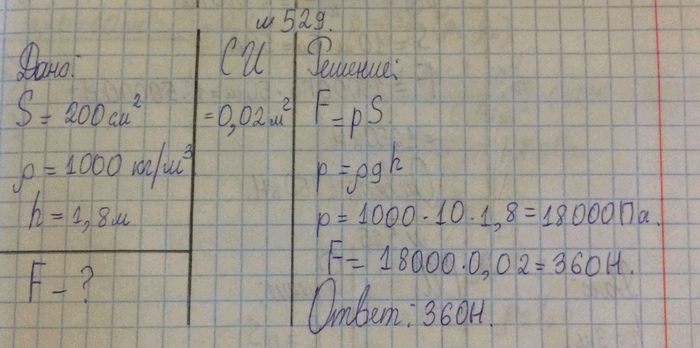 №529.
Дано:
S = 200 см²
ρ = 1000 кг/м³
h = 1,8м
F - ?
СИ
= 0,02 м²
Решение:
F = pS
p = ρgh
p = 1000 · 10 · 1,8 = 18000 Па.
F = 18000 · 0,02 = 360Н.
Ответ: 360Н.